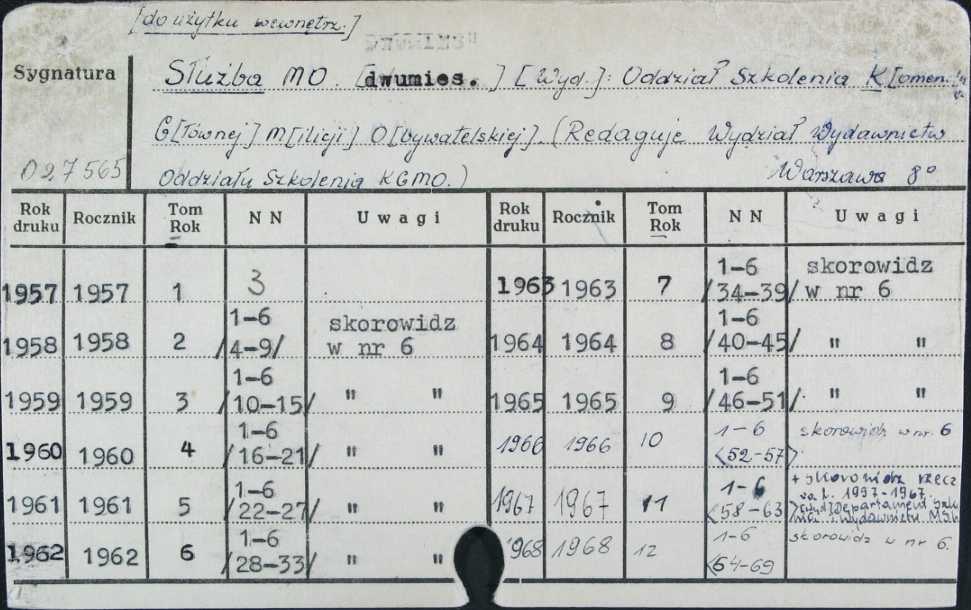 [do użytku wewnętrz.]
Sygnatura
Służba MO. [dwumies.] [Wyd.]: Oddział Szkolenia K[omen.
G[łównej] M[ilicji] O[bywatelskiej]. (Redaguje Wydział Wydawnictw
D27565 Oddziału Szkolenia KGMO.) Warszawa 8°
Rok druku Rocznik Tom Rok NN Uwagi Rok druku Rocznik Tom Rok NN Uwagi
1957 1957 1 3 1963 1963 7 1-6 /34-39/ skorowidz w nr 6
1958 1958 2 1-6 /4-9/ skorowidz w nr 6 1964 1964 8 1-6 /40-45/ " "
1959 1959 3 1-6 /10-15/ " " 1965 1965 9 1-6 /46-51/ " "
1960 1960 4 1-6 /16-21/ " " 1966 1966 10 1-6 <52-57> skorowidz w nr. 6
1961 1961 5 1-6 /22-27/ " " 1967 1967 11 1-6 <58-63> + skorowidz rzecz za l. 1957-1967. Departament i wydawnictw MSW
1962 1962 6 1-6 /28-33/ " " 1968 1968 12 1-6 <64-69 skorowidz w nr 6.